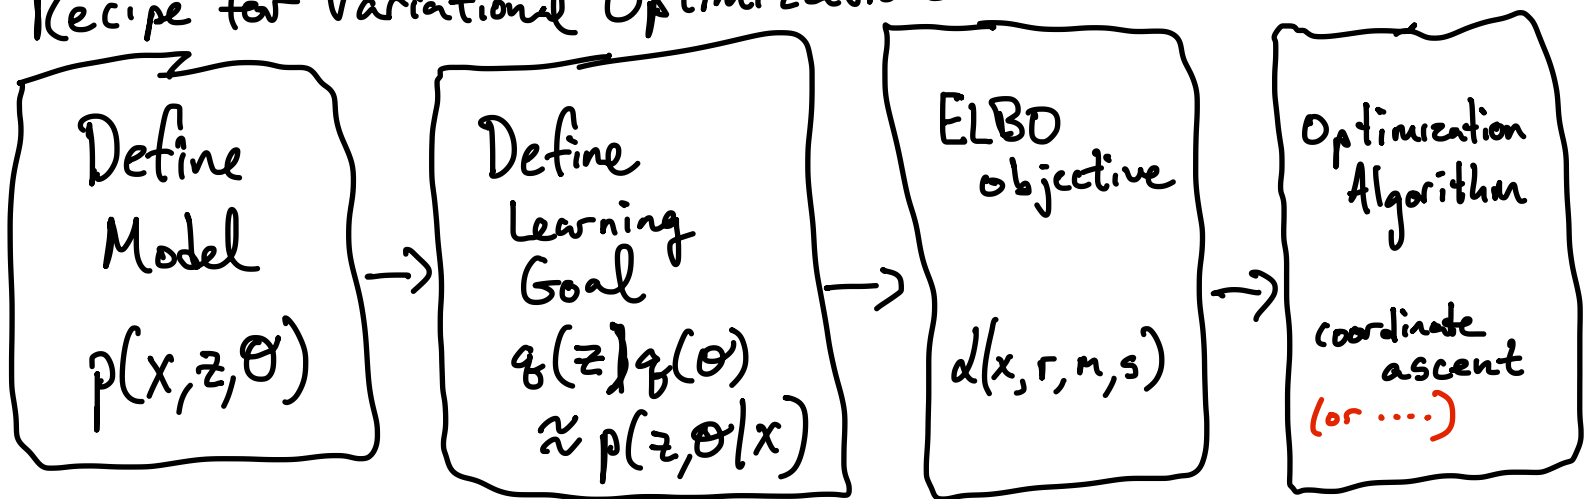 Recipe for Variational Optimization
Define
Model
p(x,z,θ)
→
Define
Learning
Goal
q(z)q(θ)
≈ p(z,θ|x)
→
ELBO
objective
L(x,r,m,s)
→
Optimization
Algorithm
coordinate
ascent
(or ....)